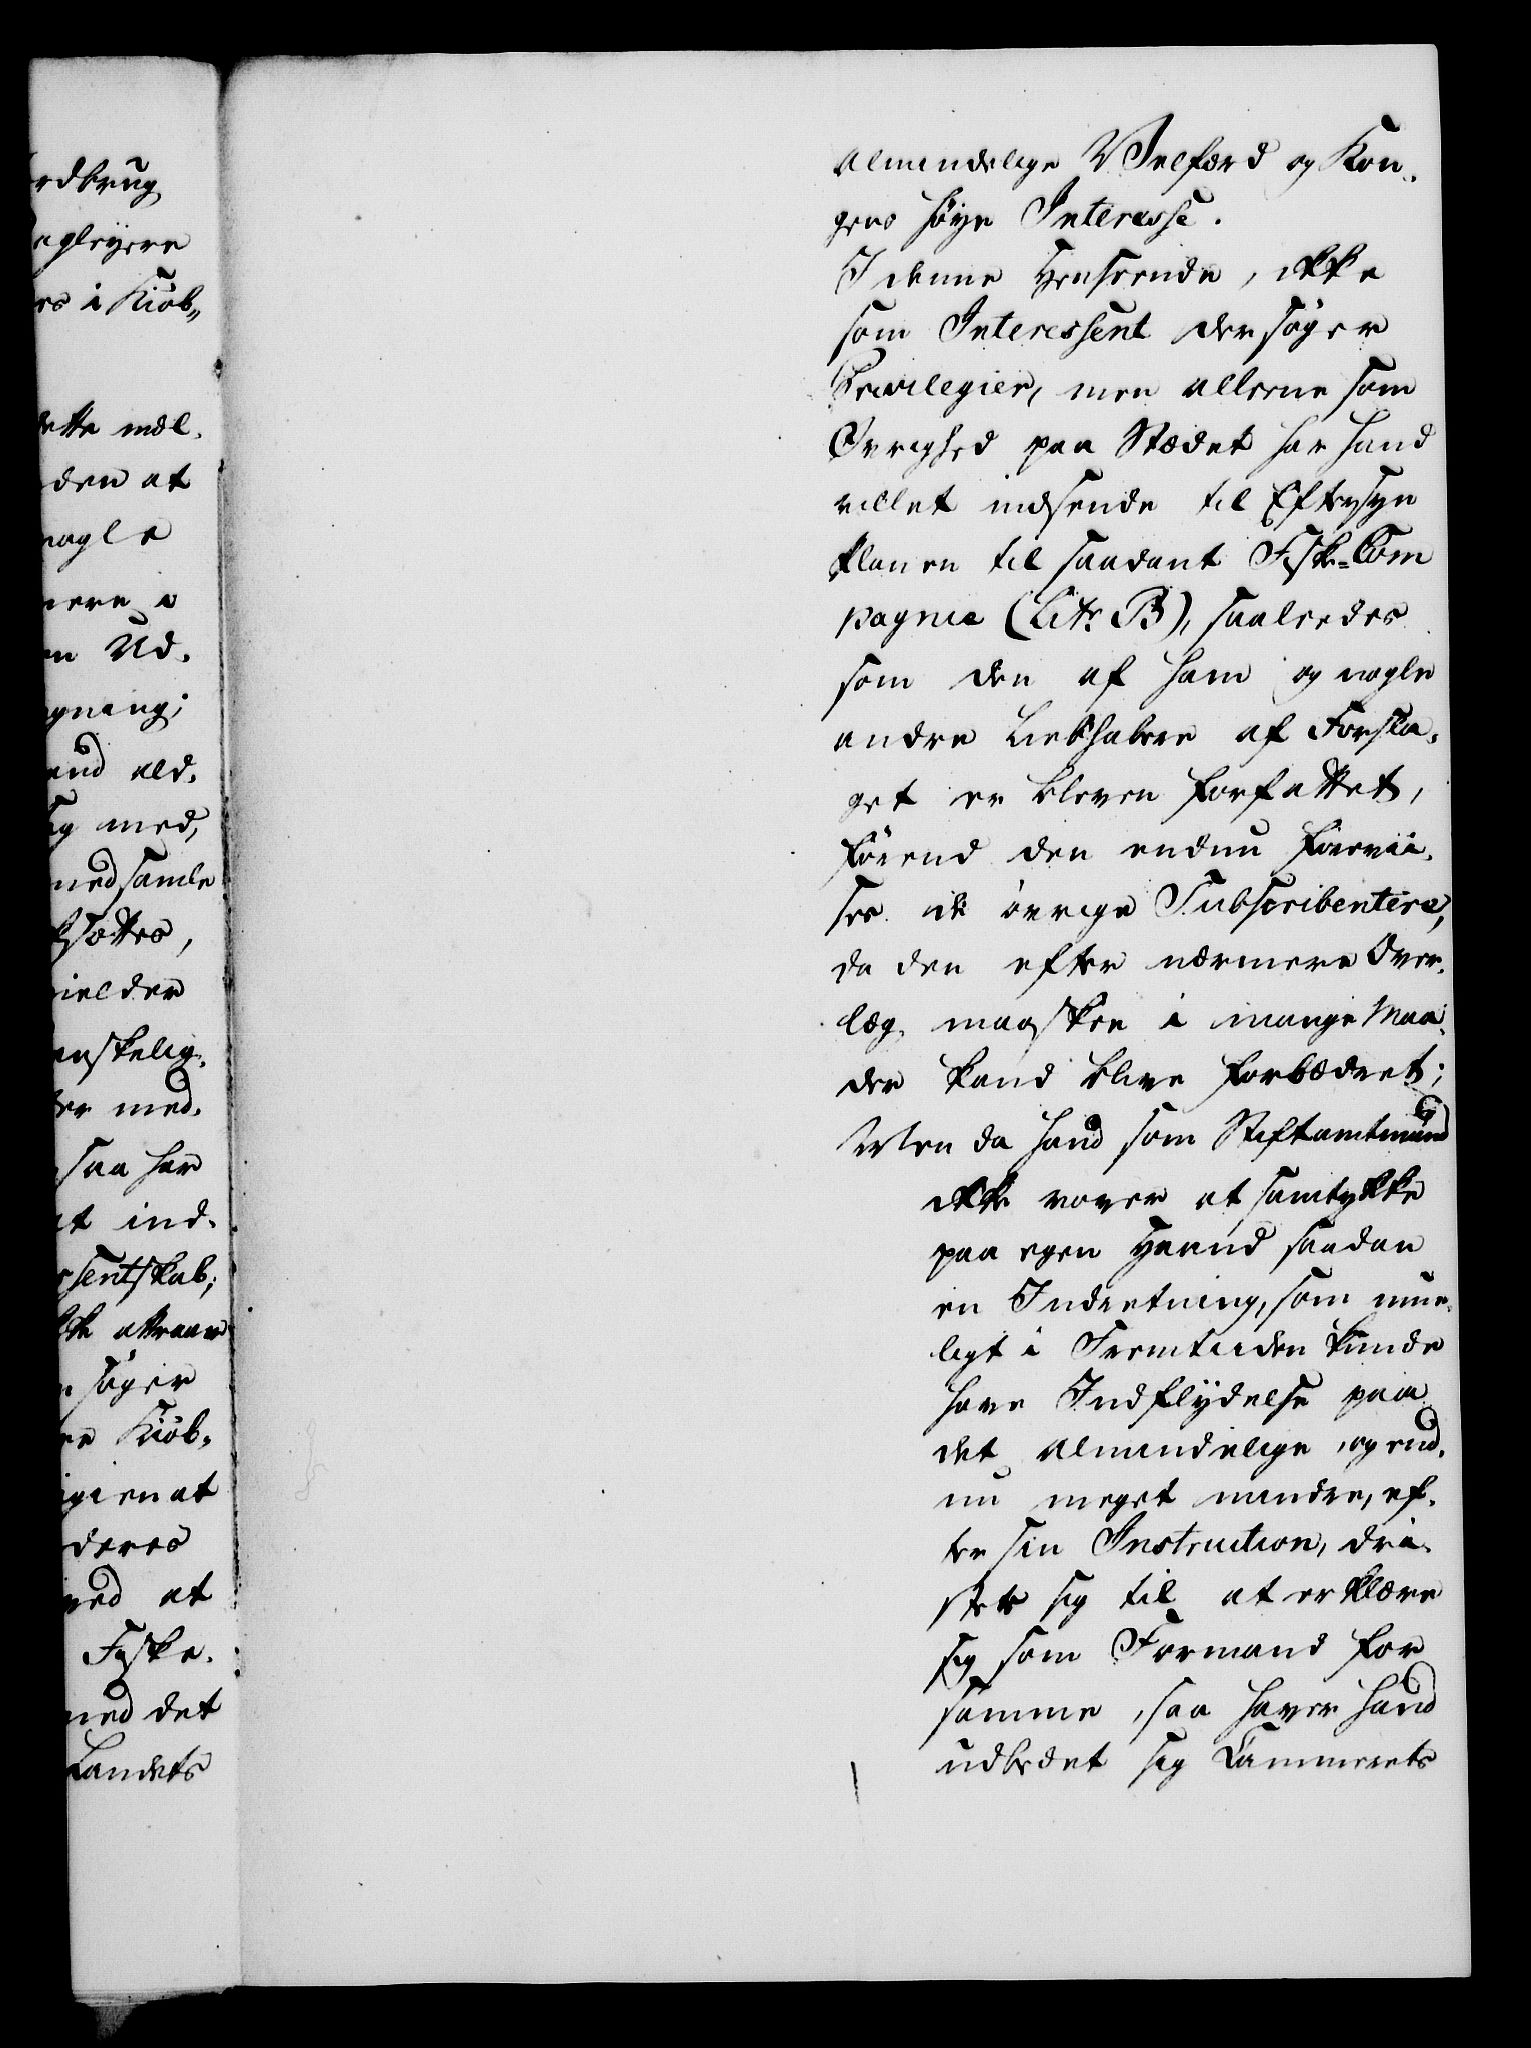 rdbrug
egleyere
es i Kiøb„
dette mæl.
den at
nogle
mere i
en Ud.
gning;
ald.
ig med,
med samle
sættes,
midler
anskelig.
ter med.
saa har
at ind.
ssentskab;
attraaer
søger
re Kiøb.
igien at
deres
ved at
Fiske.
med det
Landets
almindelige Velfærd og Kon.
gens høye Interesse.
I denne Henseende, ikke
som Interessent der søger
Privilegier, men alleene som
Øvrighed paa Stædet har hand
villet indsende til Eftersyn
Planen til saadant Fisk=Com
pagnie (Litr. B), saaledes
som den af ham og nogle
andre Liebhabere af Forsla.
get er bleven forfattet,
førend den endnu forevii.
ses de øvrige Subscribentere,
da den efter nærmere Over.
læg maaskee i mange Maa.
der kand blive forbædret;
Men da hand som Stiftamtmand
ikke vover at samtykke
paa egen Haand saadan
en Indretning, som mue.
ligt i Fremtiiden kunde
have Indflydelse paa
det almindelige, og end.
nu meget mindre, ef.
ter sin Instruction, dri.
ster sig til at erklære
sig som Formand for
samme, saa haver hand
udbedet sig Cammerets